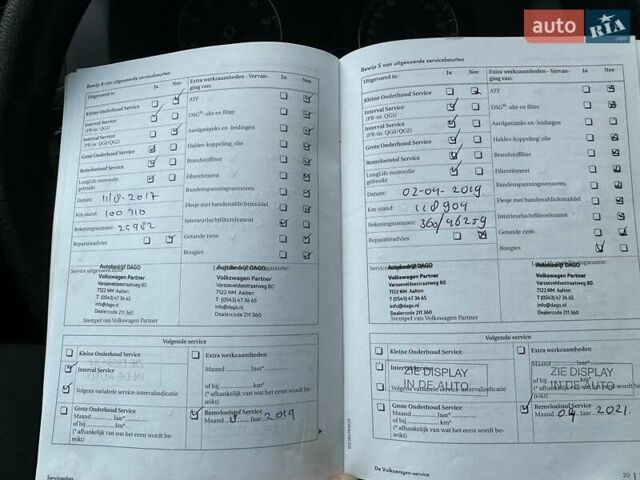 auto RIA
Bewijs 4 van uitgevoerde servicebeurten
Uitgevoerd is: Ja Nee
Kleine Onderhoud Service
Interval Service
(PR-nr. QG1)
Interval Service
(PR-nr. QG0/QG2)
Grote Onderhoud Service
Remvloeistof Service
LongLife motorolie
gebruikt
Datum: 11/8-2017
Km-stand: 100 910
Rekeningnummer: 25982
Reparatieadvies
Extra werkzaamheden - Vervan-
ging van: Ja Nee
ATF
DSG®: olie en filter
Aardgastanks en -leidingen
Haldex-koppeling: olie
Brandstoffilter
Filterelement
Bandenspanningssensoren
Flesje met bandenafdichtmiddel
Interieurluchtfilterelement
Getande riem
Bougies
Service uitgevoerd door:
Autobedrijf DAGO
Volkswagen Partner
Varsseveldsestraatweg 80
7122 NM Aalten
T (0543) 47 36 65
info@dago.nl
Dealercode 211 360
Stempel van Volkswagen Partner
Autobedrijf DAGO
Volkswagen Partner
Varsseveldsestraatweg 80
7122 NM Aalten
T (0543) 47 36 65
info@dago.nl
Dealercode 211 360
Volgende service
Kleine Onderhoud Service
Interval Service
Volgens variabele service-intervalindicatie
Grote Onderhoud Service
Maand Jaar *
of bij km*
(* afhankelijk van wat het eerst wordt be-
reikt)
Extra werkzaamheden
Maand Jaar *
of bij km*
(* afhankelijk van wat het eerst wordt be-
reikt)
Remvloeistof Service
Maand 8 Jaar 2019
Serviceplan
Bewijs 5 van uitgevoerde servicebeurten
Uitgevoerd is: Ja Nee
Kleine Onderhoud Service
Interval Service
(PR-nr. QG1)
Interval Service
(PR-nr. QG0/QG2)
Grote Onderhoud Service
Remvloeistof Service
LongLife motorolie
gebruikt
Datum: 02-04-2019
Km-stand: 118904
Rekeningnummer: 360/46259
Reparatieadvies
Extra werkzaamheden - Vervan-
ging van: Ja Nee
ATF
DSG®: olie en filter
Aardgastanks en -leidingen
Haldex-koppeling: olie
Brandstoffilter
Filterelement
Bandenspanningssensoren
Flesje met bandenafdichtmiddel
Interieurluchtfilterelement
Getande riem
Bougies
Autobedrijf DAGO
Volkswagen Partner
Varsseveldsestraatweg 80
7122 NM Aalten
T (0543) 47 36 65
info@dago.nl
Dealercode 211 360
Stempel van Volkswagen Partner
Autobedrijf DAGO
Volkswagen Partner
Varsseveldsestraatweg 80
7122 NM Aalten
T (0543) 47 36 65
info@dago.nl
Dealercode 211 360
Volgende service
Kleine Onderhoud Service
Interval Service
ZIE DISPLAY
IN DE AUTO
Volgens variabele service-intervalindicatie
Grote Onderhoud Service
Maand Jaar *
of bij km*
(* afhankelijk van wat het eerst wordt be-
reikt)
Extra werkzaamheden
ZIE DISPLAY
IN DE AUTO
(* afhankelijk van wat het eerst wordt be-
reikt)
Remvloeistof Service
Maand 04 Jaar 2021.
De Volkswagen-service
20